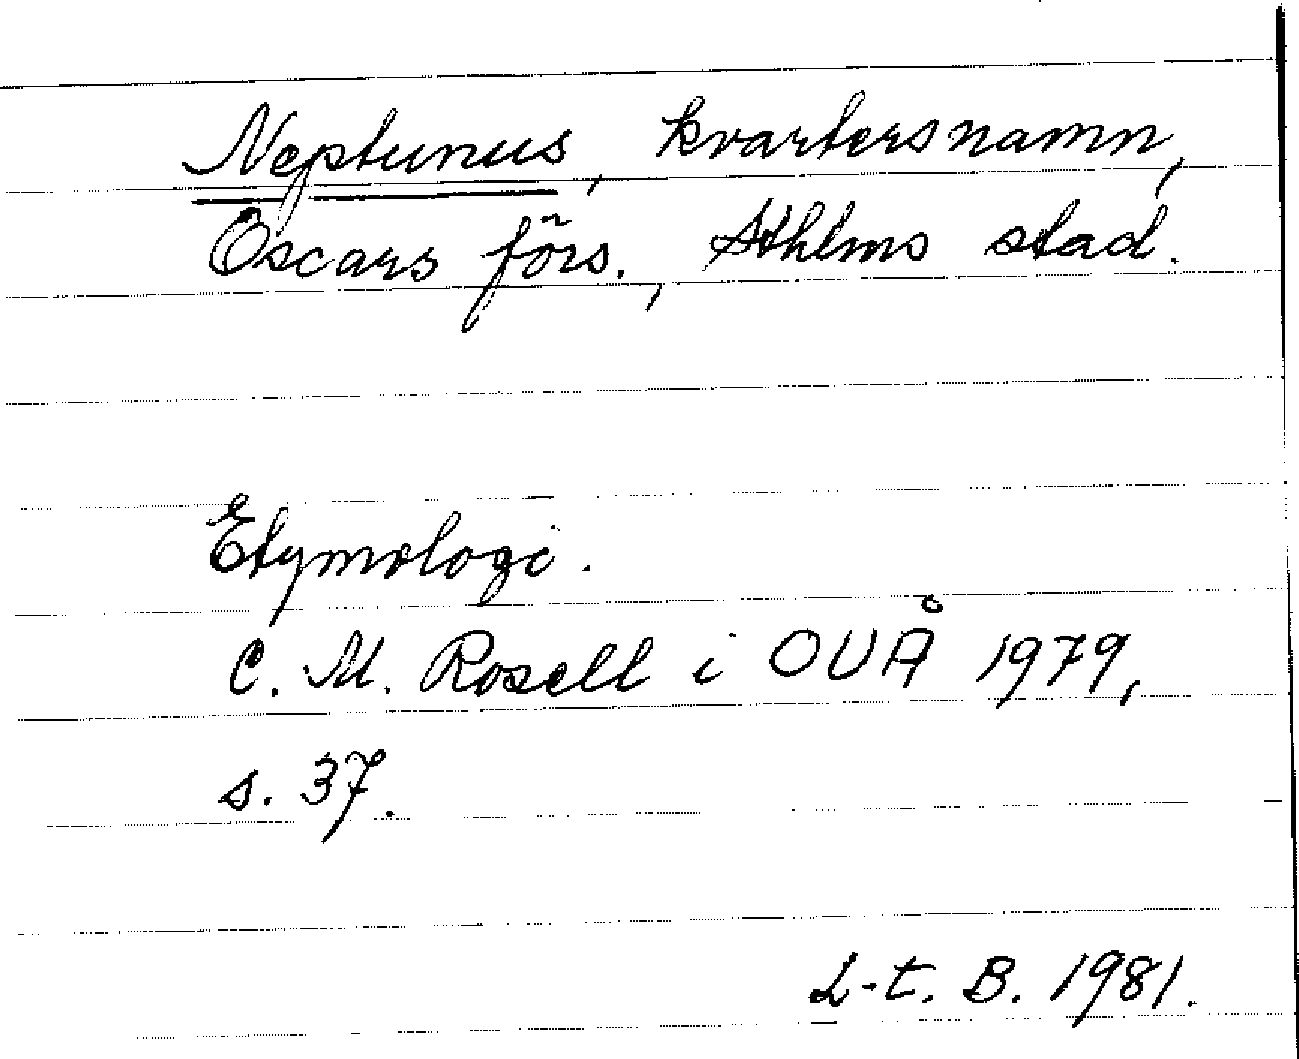 Neptunus, kvartersnamn,
Oscars förs., Sthlms stad.
Etymologi.
C. M. Rosell i OUÅ 1979,
s. 37.
L-t. B. 1981.